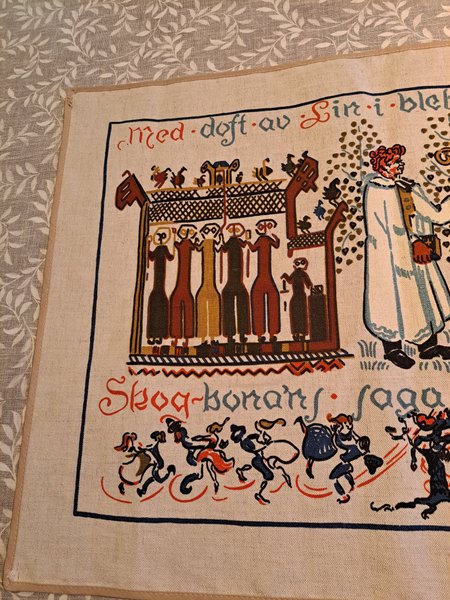 Med · doft · av · Lin · i
Skog-bonans · saga